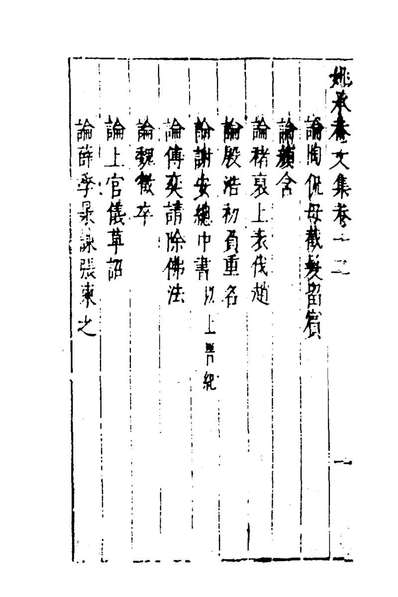 姚承菴文集卷十二
論陶侃母截髮留賓
論顏含
論褚裒上表伐趙
論殷浩初負重名
論謝安總中書以上晉紀
論傅奕請除佛法
論魏徵卒
論上官儀草詔
論薛季昶諫張柬之
一